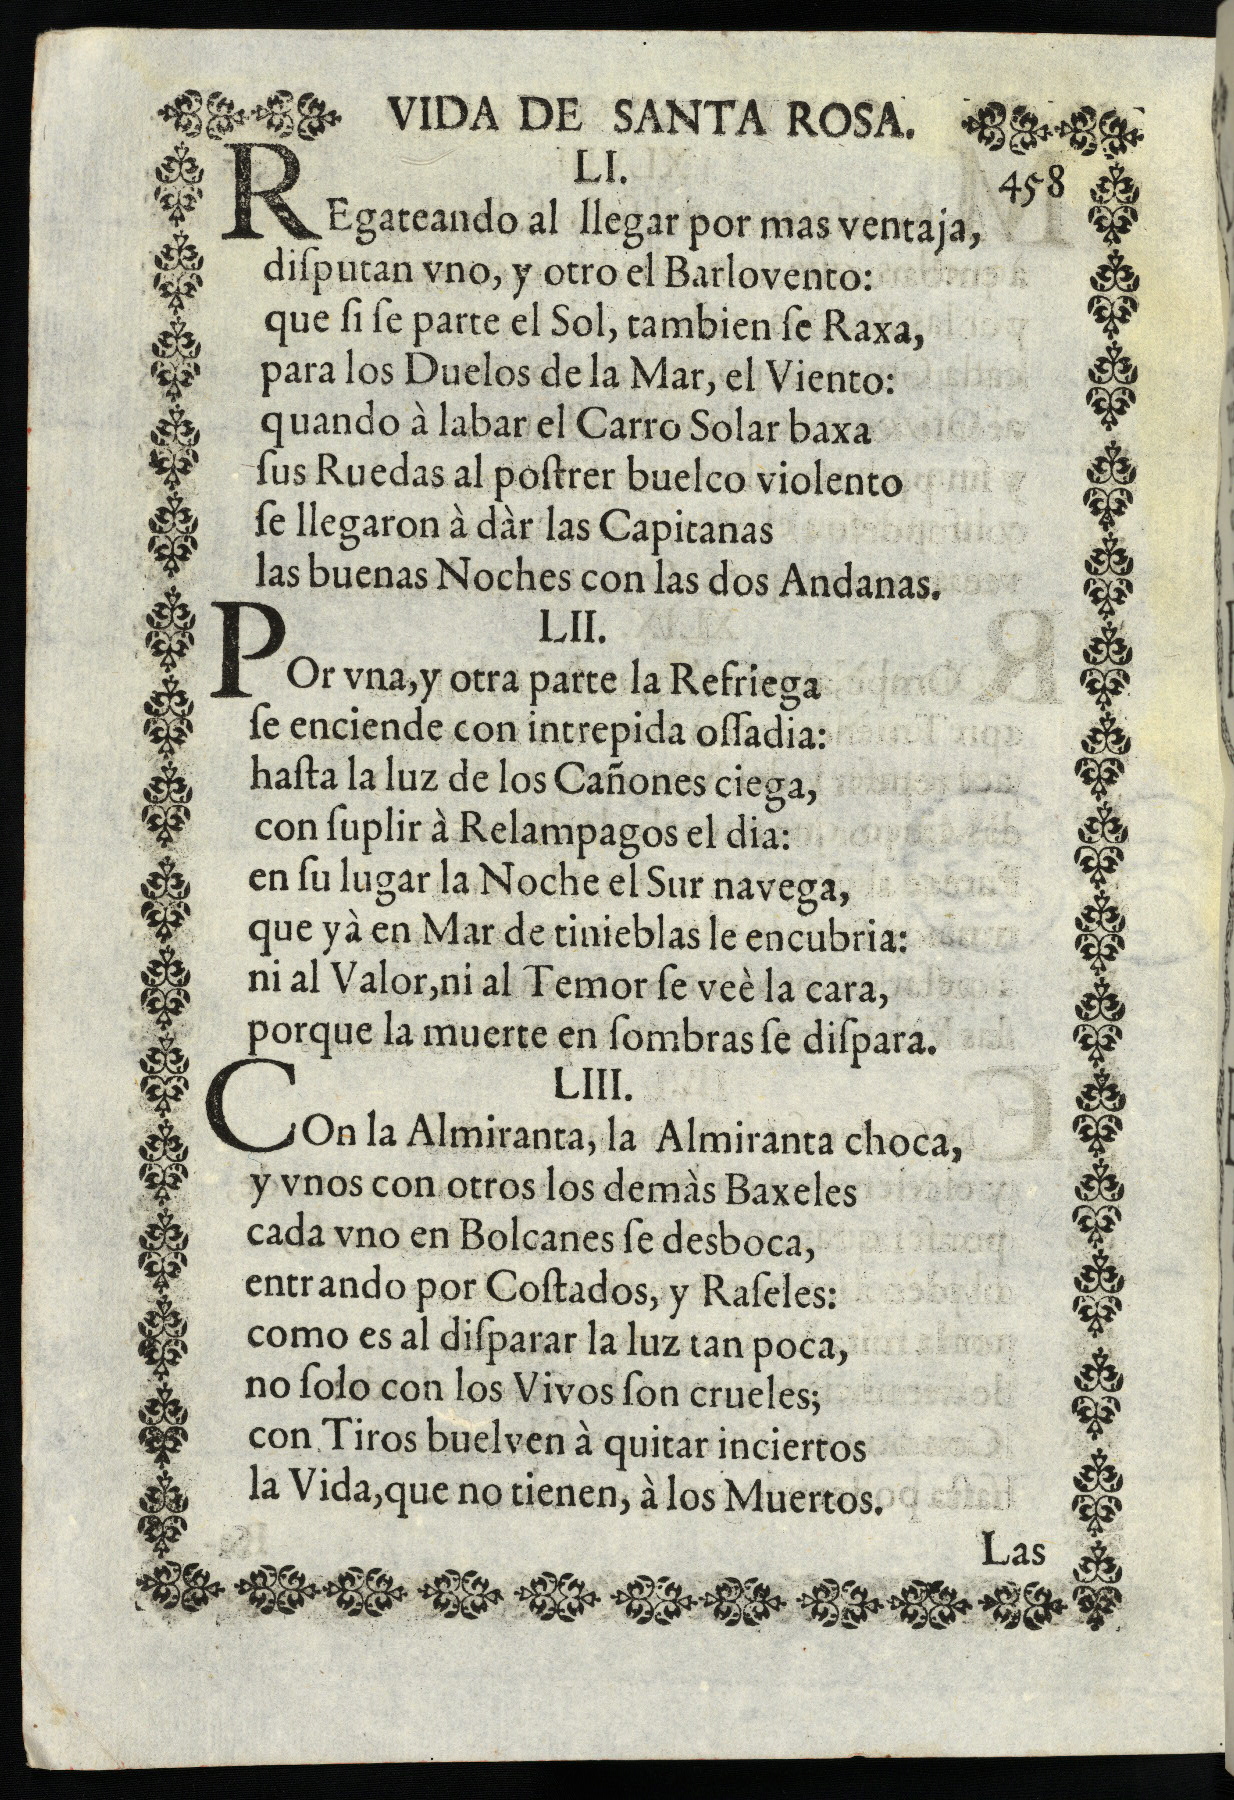 VIDA DE SANTA ROSA.
LI.
458
REgateando al llegar por mas ventaja,
diſputan vno, y otro el Barlovento:
que ſi ſe parte el Sol, tambien ſe Raxa,
para los Duelos de la Mar, el Viento:
quando à labar el Carro Solar baxa
ſus Ruedas al poſtrer buelco violento
ſe llegaron à dàr las Capitanas
las buenas Noches con las dos Andanas.
LII.
POr vna, y otra parte la Refriega
ſe enciende con intrepida oſſadia:
haſta la luz de los Cañones ciega,
con ſuplir à Relampagos el dia:
en ſu lugar la Noche el Sur navega,
que yà en Mar de tinieblas le encubria:
ni al Valor, ni al Temor ſe veè la cara,
porque la muerte en ſombras ſe diſpara.
LIII.
COn la Almiranta, la Almiranta choca,
y vnos con otros los demàs Baxeles
cada vno en Bolcanes ſe desboca,
entrando por Coſtados, y Raſeles:
como es al diſparar la luz tan poca,
no ſolo con los Vivos ſon crueles;
con Tiros buelven à quitar inciertos
la Vida, que no tienen, à los Muertos.
Las